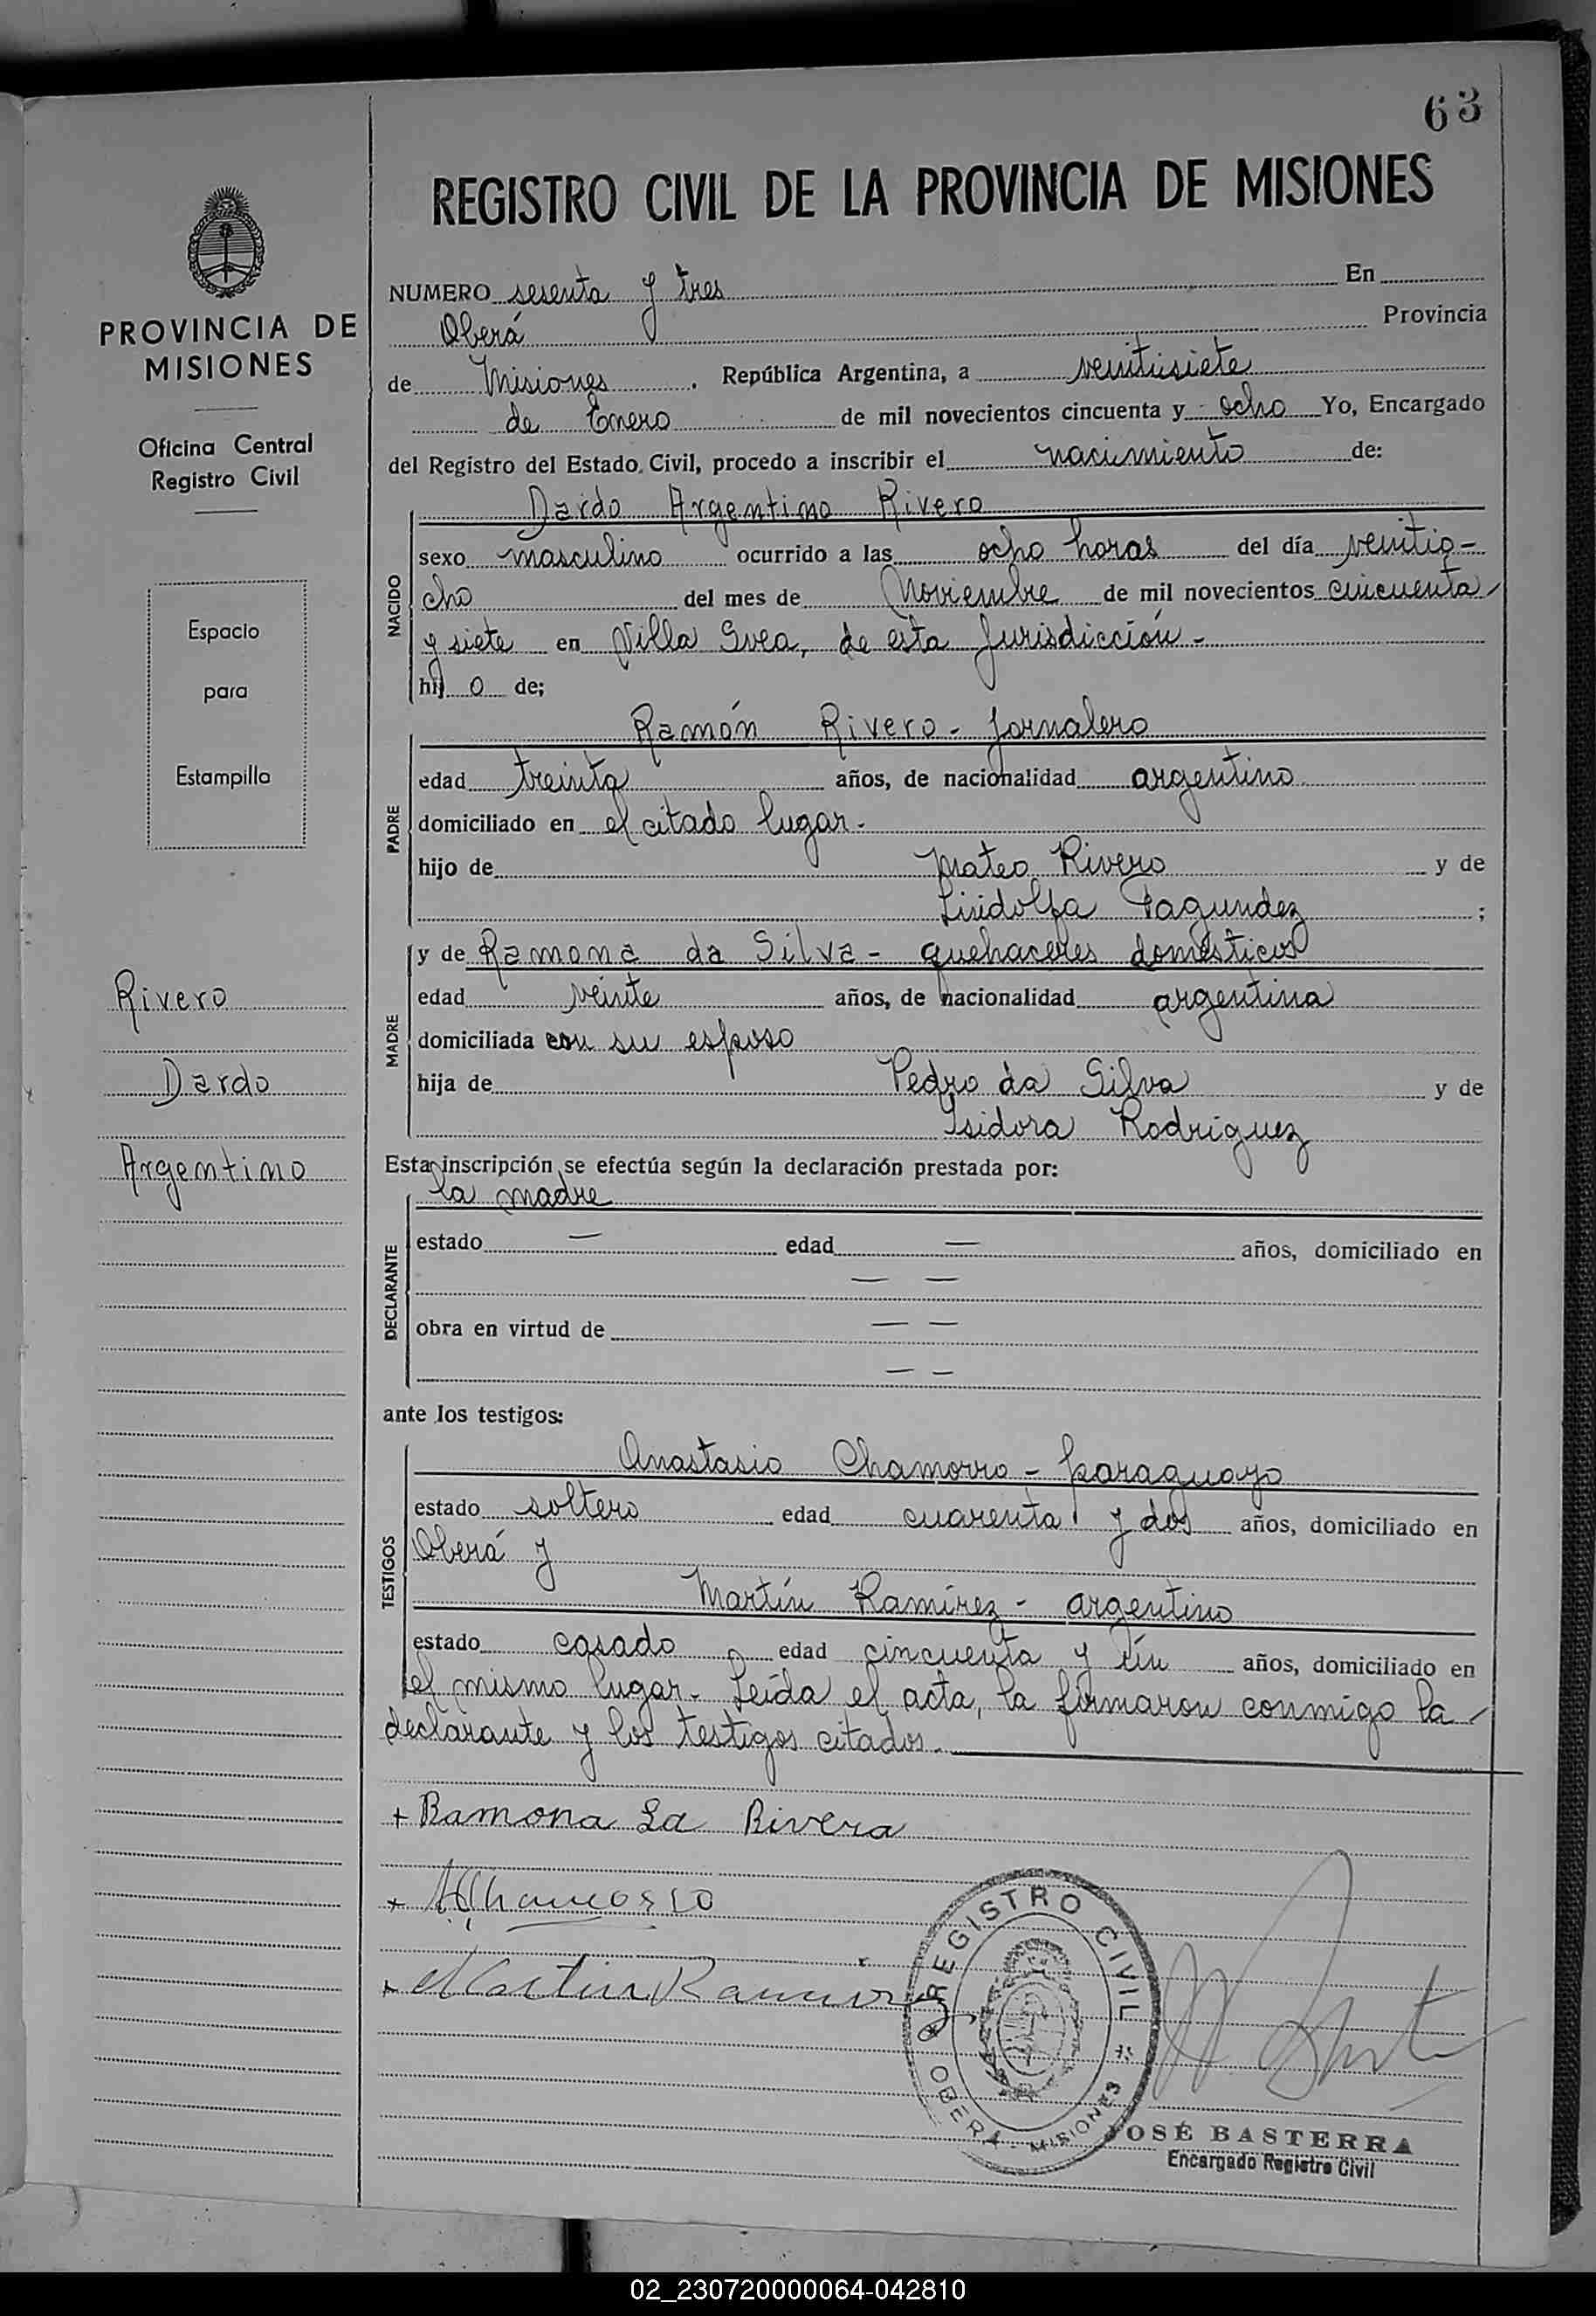 63
REGISTRO CIVIL DE LA PROVINCIA DE MISIONES
PROVINCIA DE
MISIONES
Oficina Central
Registro Civil
Espacio
para
Estampilla
Rivero
Dardo
Argentino
NUMERO sesenta y tres En
Oberá Provincia
de Misiones . República Argentina, a veintisiete
de Enero de mil novecientos cincuenta y ocho Yo, Encargado
del Registro del Estado Civil, procedo a inscribir el nacimiento de:
NACIDO
Dardo Argentino Rivero
sexo masculino ocurrido a las ocho horas del día veintio-
cho del mes de Noviembre de mil novecientos cincuenta
y siete en Villa Svea, de esta Jurisdicción.-
hij o de;
PADRE
Ramón Rivero - jornalero
edad treinta años, de nacionalidad argentino
domiciliado en el citado lugar.
hijo de Mateo Rivero y de
Lindolfa Fagundez ;
MADRE
y de Ramona da Silva - quehaceres domésticos
edad veinte años, de nacionalidad argentina
domiciliada con su esposo
hija de Pedro da Silva y de
Isidora Rodriguez
Esta inscripción se efectúa según la declaración prestada por:
DECLARANTE
la madre
estado — edad — años, domiciliado en
— —
obra en virtud de — —
— —
ante los testigos:
TESTIGOS
Anastasio Chamorro - paraguayo
estado soltero edad cuarenta y dos años, domiciliado en
Oberá y
Martín Ramírez - argentino
estado casado edad cincuenta y un años, domiciliado en
el mismo lugar. Leída el acta, la firmaron conmigo la
declarante y los testigos citados.
+ Ramona La Rivera
+ AChamorro
+ Martin Ramirez
REGISTRO CIVIL
OBERA - MISIONES
JOSÉ BASTERRA
Encargado Registro Civil
02_230720000064-042810